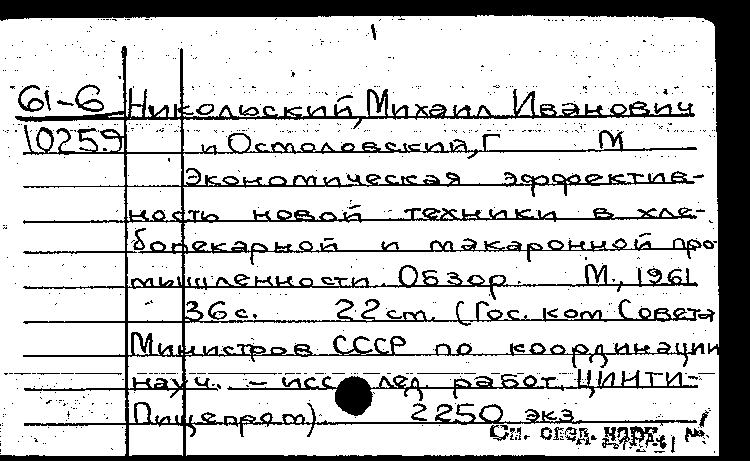 61-6 Никольский, Михаил Иванович
10259 и Осмоловский, Г М
Экономическая эффектив-
ность новой техники в хле-
бопекарной и макаронной про
мышленности. Обзор М., 1961
36 с. 22 см. (Гос. ком Совета
Министров СССР по координации
науч. - исслед. работ. ЦИНТИ-
Пищепром). 2250 экз
См. след. карт.